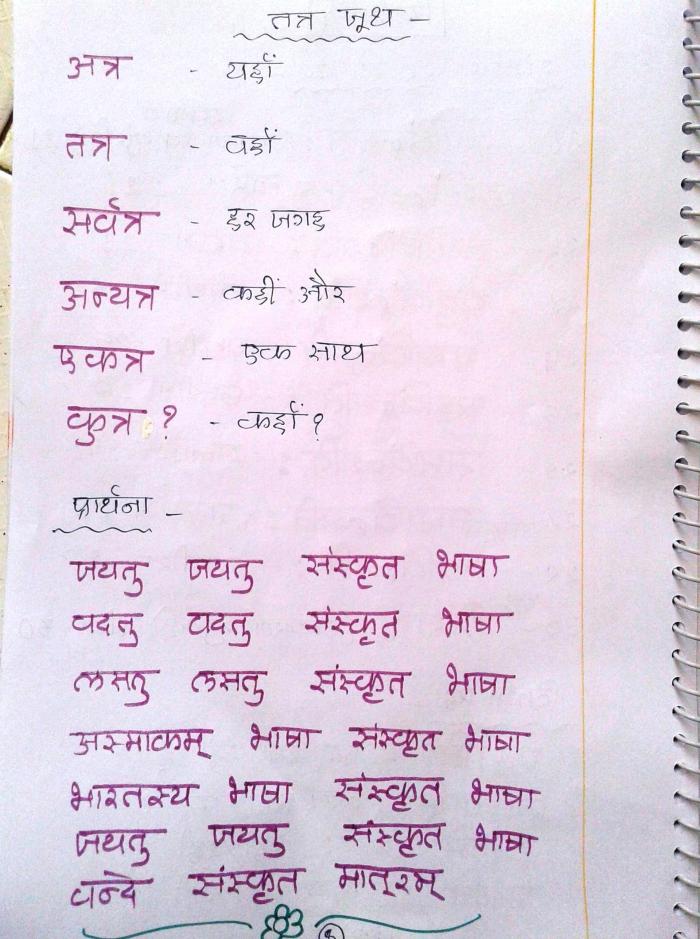 तत्र जूथ -
अत्र - यहाँ
तत्र - वहाँ
सर्वत्र - हर जगह
अन्यत्र - कहीं और
एकत्र - एक साथ
कुत्र ? - कहाँ ?
प्रार्थना -
जयतु जयतु संस्कृत भाषा
वदतु वदतु संस्कृत भाषा
लसतु लसतु संस्कृत भाषा
अस्माकम् भाषा संस्कृत भाषा
भारतस्य भाषा संस्कृत भाषा
जयतु जयतु संस्कृत भाषा
वन्दे संस्कृत मातरम्